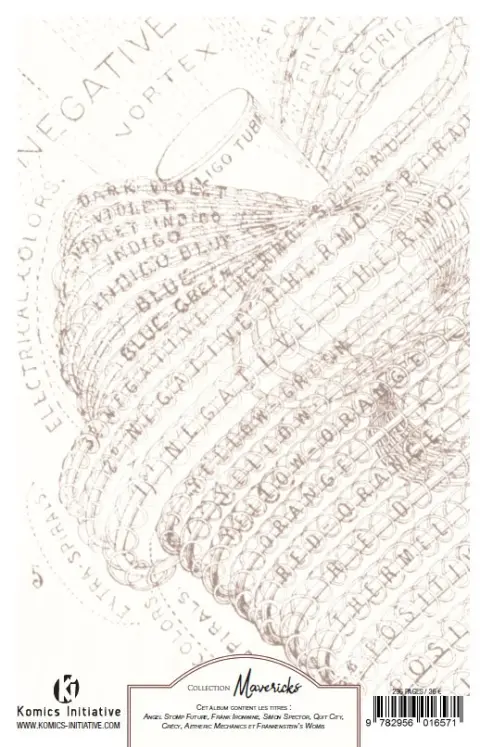 NEGATIVE
VORTEX
FRICTI
ELECTRIC
INDIGO TUBE
DARK VIOLET
VIOLET
VIOLET INDIGO
INDIGO
INDIGO BLUE
BLUE
BLUE-GREEN
ELECTRICAL COLORS.
NEGATIVE THERMO-SPIRAL
2° NEGATIVE THERMO-SPIRAL
1st NEGATIVE THERMO-
YELLOW-GREEN
YELLOW
YELLOW-ORANGE
ORANGE
RED-ORANGE
RED
THERMEL
POSITI
EXTRA SPIRALS
COLORS
PIRALS
Ki
Komics Initiative
WWW.KOMICS-INITIATIVE.COM
COLLECTION Mavericks
CET ALBUM CONTIENT LES TITRES :
ANGEL STOMP FUTURE, FRANK IRONWINE, SIMON SPECTOR, QUIT CITY,
CRÉCY, AETHERIC MECHANICS ET FRANKENSTEIN'S WOMB.
9 782956 016571